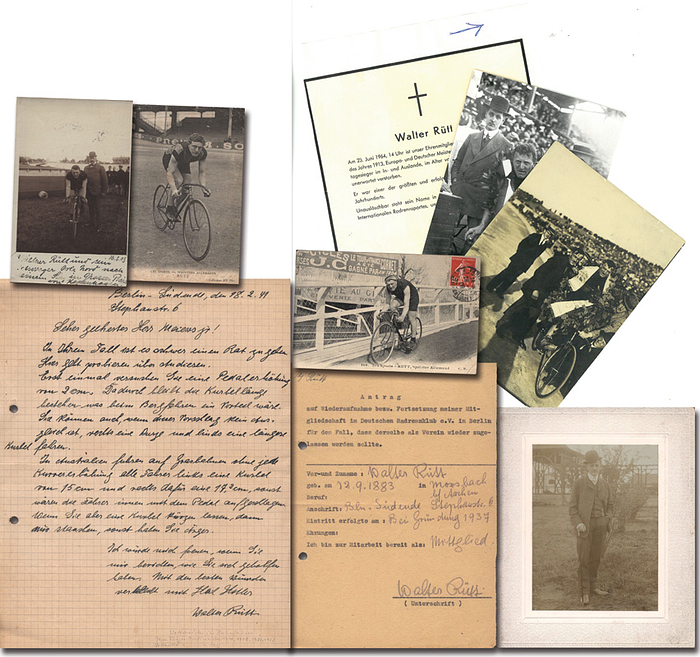 Walter Rütt
Am 23. Juni 1964, 14 Uhr ist unser Ehrenmitglied
des Jahres 1913, Europa- und Deutscher Meister
tagesieger im In- und Auslande, im Alter v
unerwartet verstorben.
Er war einer der größten und erfolg
Jahrhunderts.
Unauslöschbar steht sein Name in
Internationalen Radrennsportes, un
LES SPORTS
RUTT
LE TOUR
GAGNÉ PAR
RUTT, Sprinter Allemand
Rütt und sein
Berlin-Südende, den 18.2.49
Stephanstr. 6
Sehr geehrter Herr
In Ihrem Fall ist es schwer einen Rat zu geben
Hier geht probieren über studieren.
Erst einmal versuchen Sie eine Pedalerhöhung
von 2 cm. Dadurch bleibt die Kurbellänge
bestehen was beim Bergfahren ein Vorteil wäre.
Sie können auch, wenn dieser Vorschlag
ist, rechts eine kurze und links eine längere
Kurbel fahren.
In Australien fuhren auf Grasbahnen ohne jede
Kurvenerhöhung alle Fahrer links eine Kurbel
von 15 cm und rechts dafür eine 17,2 cm, sonst
wären die Fahrer innen mit dem Pedal
Wenn Sie aber eine Kurbel kürzen lassen, dann
sonst haben Sie Ärger.
Ich würde mich freuen, wenn Sie
mir berichten, wie Sie sich geholfen
haben. Mit den besten Wünschen
verbleibt mit
Walter Rütt
Antrag
auf Wiederaufnahme bezw. Fortsetzung meiner Mit-
gliedschaft im Deutschen Radrennklub e.V. in Berlin
für den Fall, dass derselbe als Verein wieder zuge-
lassen werden sollte.
Vor-und Zuname: Walter Rütt
geb. am 12.9.1883 in Morsbach
b/Aachen
Beruf:
Anschrift: Bln. Südende Stephanstr. 6
Eintritt erfolgte am: Bei Gründung 1937
Ehrungen:
Ich bin zur Mitarbeit bereit als: Mittglied.
Walter Rütt
( Unterschrift )